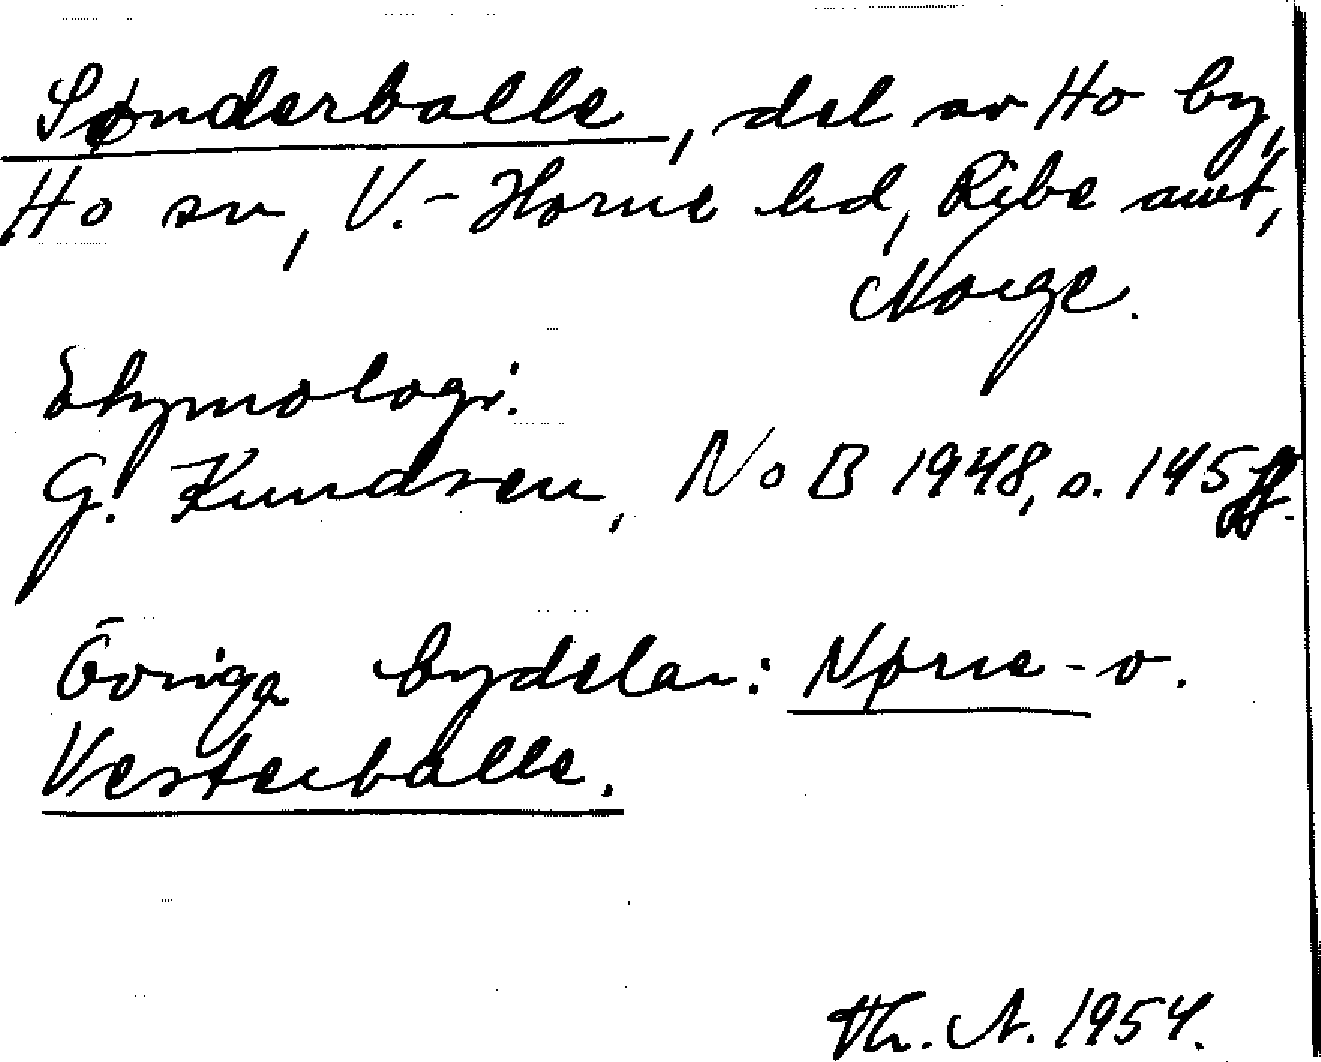 Sønderballe, del av Ho by,
Ho sn, V.-Horne hd, Ribe amt,
Norge.
Etymologi.
G. Knudsen, NoB 1948, s. 145 ff.
Övriga bydelar: Nørre- o.
Vesterballe.
Th. A. 1954.